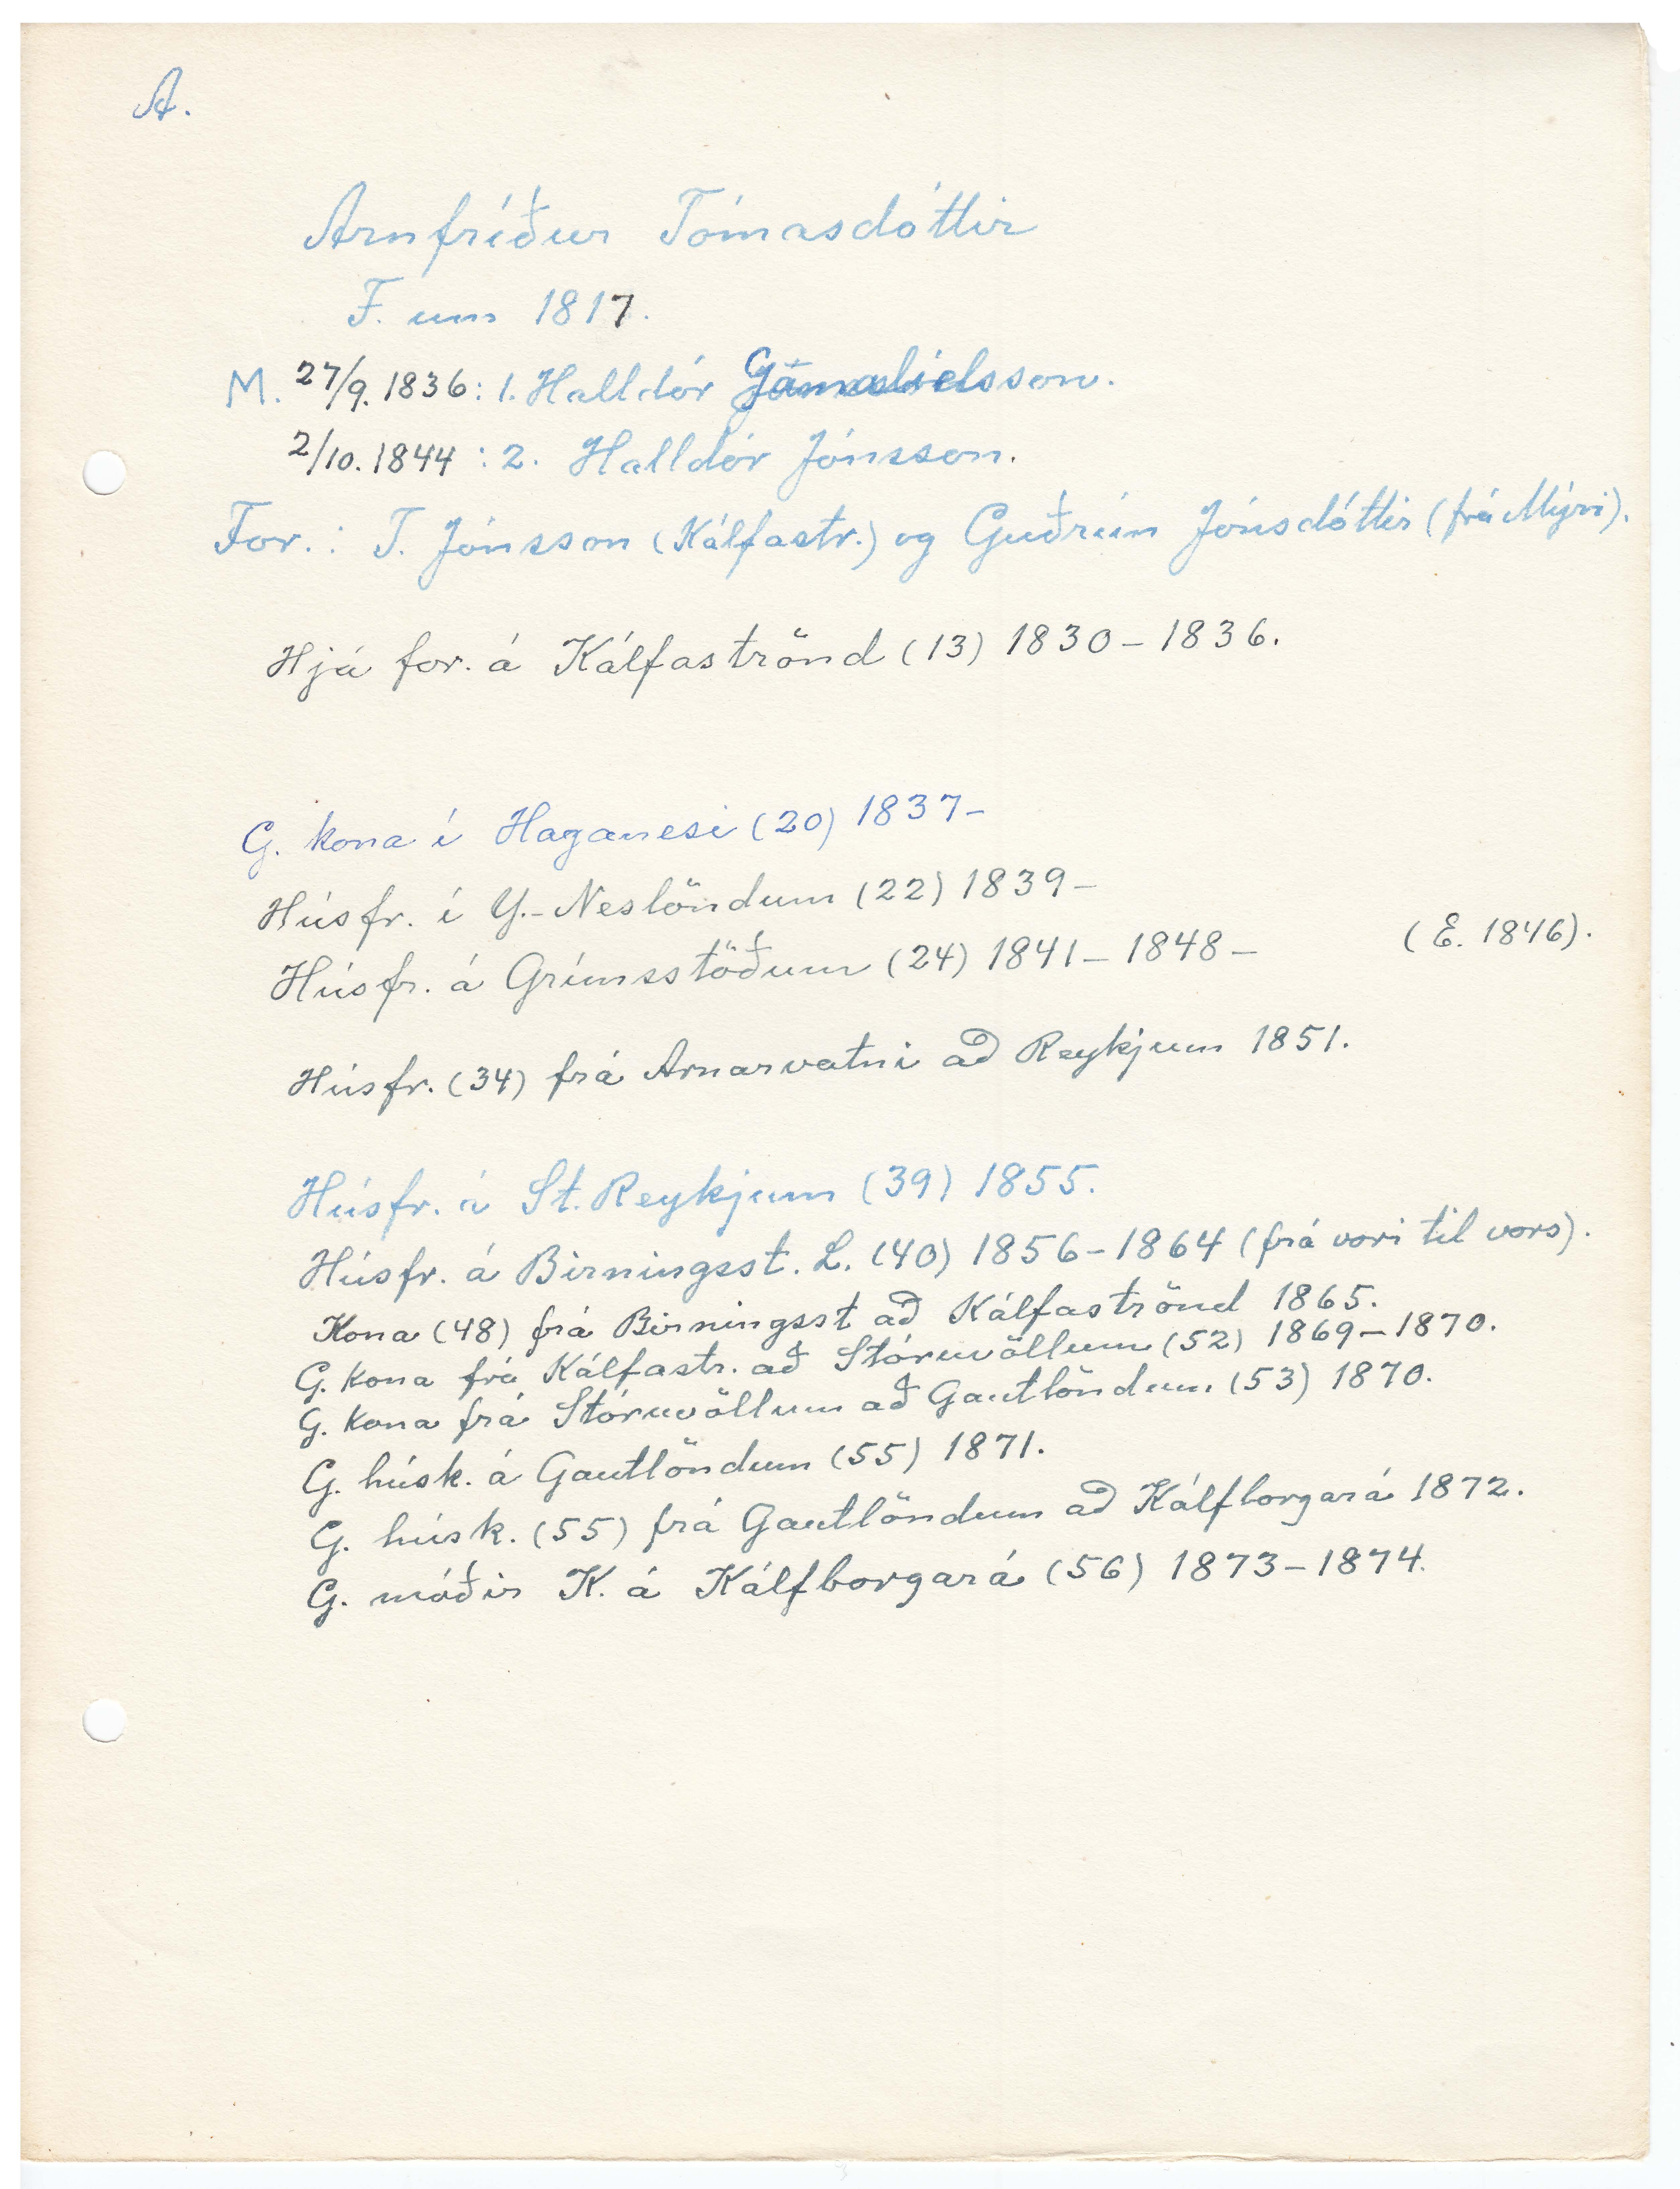 A.
Arnfríður Tómasdóttir
F. um 1817.
M. 27/9. 1836: 1. Halldór Gamalíelsson.
2/10. 1844 : 2. Halldór Jónsson.
For.: T. Jónsson (Kálfastr.) og Guðrún Jónsdóttir (frá Mýri).
Hjá for. á Kálfaströnd (13) 1830-1836.
G. kona í Haganesi (20) 1837-
Húsfr. í Y.-Neslöndum (22) 1839-
Húsfr. á Grímsstöðum (24) 1841-1848- (E. 1846).
Húsfr. (34) frá Arnarvatni að Reykjum 1851.
Húsfr. á St. Reykjum (39) 1855.
Húsfr. á Birningsst. L. (40) 1856-1864 (frá vori til vors).
Kona (48) frá Birningsst að Kálfaströnd 1865.
G. kona frá Kálfastr. að Stóruvöllum (52) 1869-1870.
G. kona frá Stóruvöllum að Gautlöndum (53) 1870.
G. húsk. á Gautlöndum (55) 1871.
G. húsk. (55) frá Gautlöndum að Kálfborgará 1872.
G. móðir K. á Kálfborgará (56) 1873-1874.